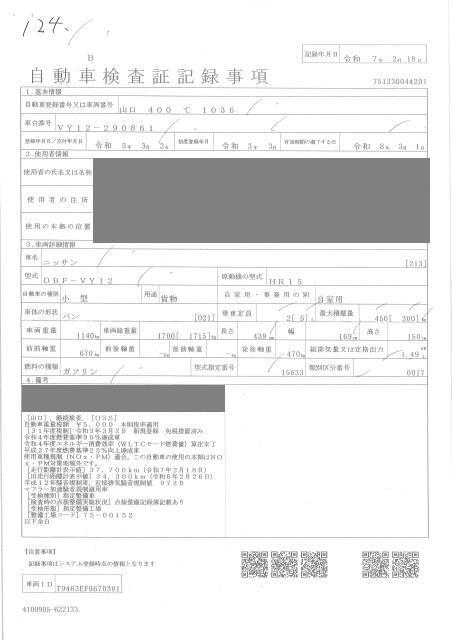 124.
B
記録年月日 令和 7年 2月18日
自動車検査証記録事項
751230044201
1.基本情報
自動車登録番号又は車両番号 山口 400 て 1036
車台番号 VY12-290861
登録年月日/交付年月日 令和 3年 3月 2日 初度登録年月 令和 3年 3月 有効期間の満了する日 令和 8年 3月 1日
2.使用者情報
使用者の氏名又は名称
使用者の住所
使用の本拠の位置
3.車両詳細情報
車名 ニッサン [213]
型式 DBF-VY12 原動機の型式 HR15
自動車の種別 小型 用途 貨物 自家用・事業用の別 自家用
車体の形状 バン [021] 乗車定員 2[ 5]人 最大積載量 450[ 300]kg
車両重量 1140kg 車両総重量 1700[ 1715]kg 長さ 439cm 幅 169cm 高さ 150cm
前前軸重 670kg 前後軸重 -kg 後前軸重 -kg 後後軸重 470kg 総排気量又は定格出力 1.49L
燃料の種類 ガソリン 型式指定番号 15633 類別区分番号 0017
4.備考
[山口],継続検査,[OSS]
自動車重量税額 ¥5,000 本則税率適用
[31年度税制]令和3年3月2日 新規登録 免税措置済み
令和4年度燃費基準90%達成車
令和4年度エネルギー消費効率(WLTCモード燃費値)算定未了
平成27年度燃費基準25%向上達成車
使用車種規制(NOx・PM)適合,この自動車の使用の本拠はNO
x・PM対策地域外です。
[走行距離計表示値]37,700km(令和7年2月18日)
[旧走行距離計表示値]34,300km(令和6年2月26日)
平成12年騒音規制車,近接排気騒音規制値 97dB
マフラー加速騒音規制適用車
[受検種別]指定整備車
[検査時の点検整備実施状況]点検整備記録簿記載あり
[受検形態]指定整備工場
[整備工場コード]75-00152
以下余白
【注意事項】
記録事項はシステム登録時点の情報となります
車両ID T9463EF9670301
4100905-622133